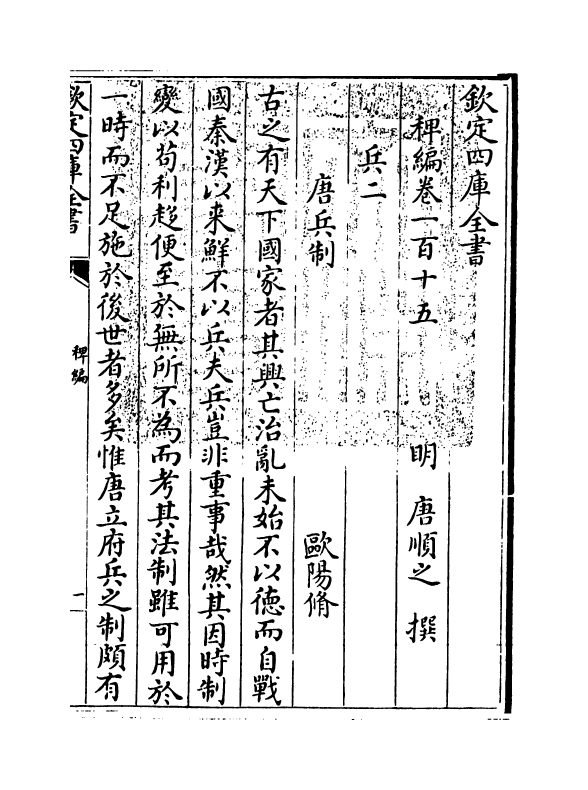 欽定四庫全書
稗編卷一百十五　明　唐順之　撰
兵二
唐兵制　歐陽脩
古之有天下國家者其興亡治亂未始不以德而自戰
國秦漢以來鮮不以兵夫兵豈非重事哉然其因時制
變以苟利趨便至於無所不為而考其法制雖可用於
一時而不足施於後世者多矣惟唐立府兵之制頗有
欽定四庫全書
稗編
一